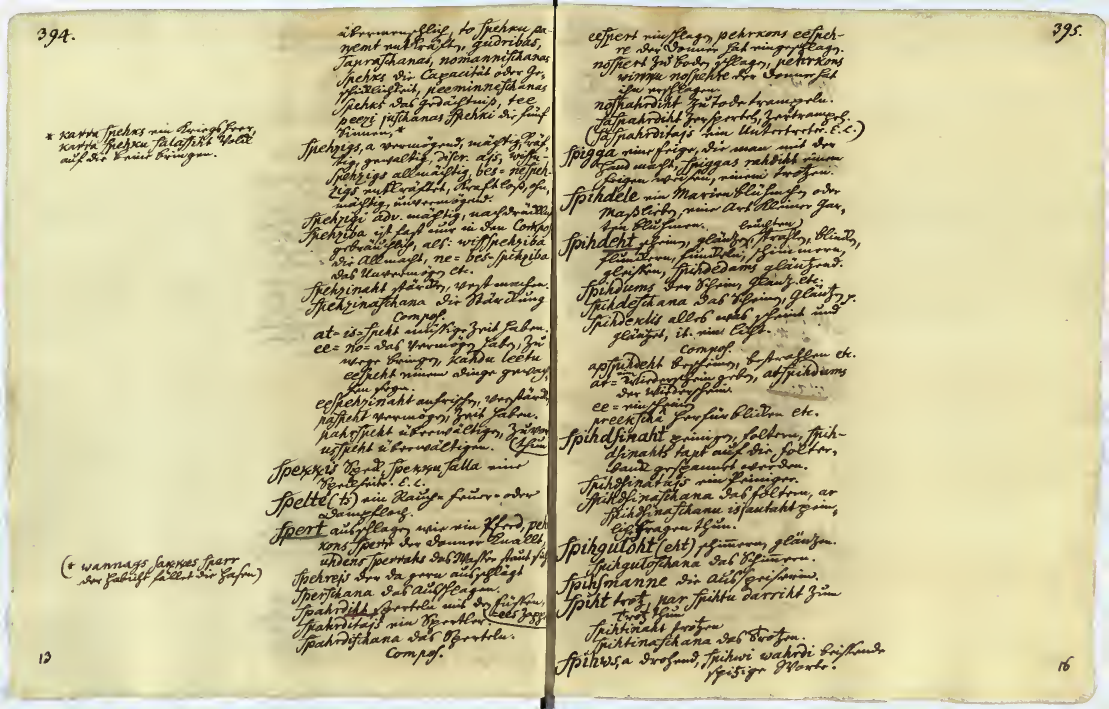 394.
übermenschlich, to spehku pa-
ņemt entkräften, gudribas,
sapraschanas, nomannischanas
spehks die Capacität oder Ge-
schiklichkeit, peeminneschanas
spehks das Gedächtniß, tee
peezi juschanas spehki die fünf
Sinnen, *
* karra spehks ein Kriegs Heer,
karra spehku salassiht Volk
auf die Beine bringen.
spehzigs, a vermögend, mächtig, kräf-
tig, gewaltig,
spehzigs allmächtig, bes= nespeh-
zigs entkräftet, kraftloß, ohn-
mächtig, unvermögend.
spehzigi adv. mächtig, nachdrücklich
spehziba ist fast nur in den Compos.
gebräuchlich, als: wissspehziba
die Allmacht, ne= bes=spehziba
das Unvermögen etc.
spehzinaht stärken, vest machen.
spehzinaschana die Stärckung
Compos.
at= is=speht müssige Zeit haben.
ee= no= das Vermögen haben, zu
wege bringen, kahdu leetu
eespeht einem Dinge gewach-
sen seyn.
eespehzinaht anfrischen, verstärk.
paspeht vermögen, Zeit haben.
pahrspeht überwältigen, zuvor
usspeht überwältigen. (thun
Spekkis Speck, spekku salla eine
Speckseite. E. L.
Spelte (ts) ein Rauch= Feuer= oder
Dampfloch.
Spert ausschlagen wie ein Pferd, pehr-
kons sperr der Donner knallt,
uhdens sperrahs das Wasser staut sich
(* wannags sakkes sperr
der Habicht fället die Hasen)
Spehrejs der da gern ausschlägt
Sperschana das Ausschlagen.
Spahrdiht sperteln mit den Füssen,
Spahrditajs ein Spertler.
Spahrdischana das Sperteln.
Compos.
13
395.
eespert einschlagen pehrkons eespeh-
re der Donner hat eingeschlagen.
nospert zu boden schlagen, pehrkons
winnu nospehre der Donner hat
ihn erschlagen.
nospahrdiht zu Tode trampeln.
saspahrdiht zersperteln, zertrampeln.
(saspahrditajs ein Untertreter. E. L.)
Spigga eine Feige, die man mit der
Hand macht, spiggas rahdiht einem
Feigen weisen, einem trotzen.
Spihdele ein Marienblühmchen oder
Maßlieben, eine Art kleiner Gar-
ten Bluhmen. leuchten,
Spihdeht schein, gläntzen, strahlen, blinken,
flunkern, funkeln, schimmern,
gleissen, spihdedams gläntzend.
Spihdums der Schein, Glantz etc.
Spihdeschana das Schein, Gläntzen
Spihdeklis alles was scheint und
gläntzet, it. ein Licht.
Compos.
apspihdeht bescheinen, bestrahlen etc.
at= Wiederschein geben, atspihdums
der Wiederschein.
ee= einscheinen
preekschâ herfür blicken etc.
Spihdsinaht peinigen, foltern, spih-
dsinahts tapt auf die Folter-
banck gespannet werden.
Spihdsinatajs ein Peiniger.
Spihdsinaschana das Foltern, ar
spihdsinaschanu isjautaht pein-
lich fragen thun.
Spihguloht (eht) schimmern gläntzen.
Spihguloschana das Schimmern.
Spihsmanne die Ausspeiserin.
Spiht trotz, par spihtu darriht zum
Trotz thun
Spihtinaht trotzen
Spihtinaschana das Trotzen.
Spihws, a drohend, spihwi wahrdi beissende
spitzige Worte.
16